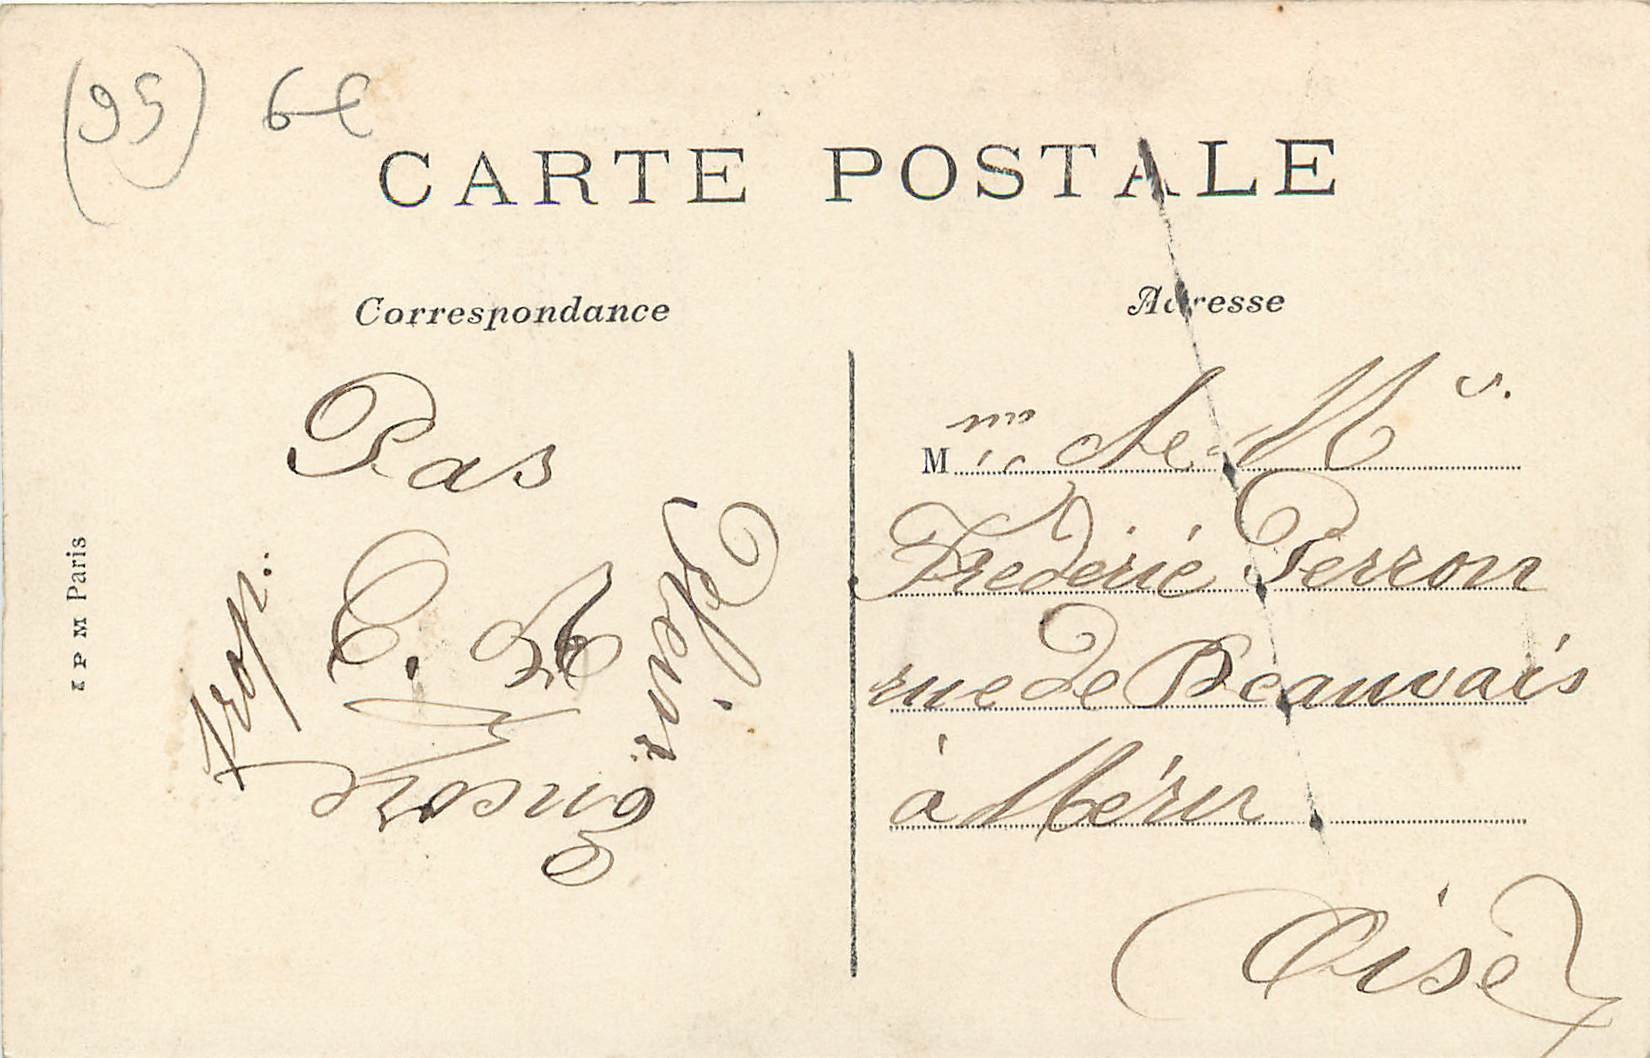 (95) 6€
CARTE POSTALE
Correspondance
Adresse
Pas
trop.
C. H.
I P M Paris
M me et Mr.
Frédéric Perron
rue de Beauvais
à Méru
Oise